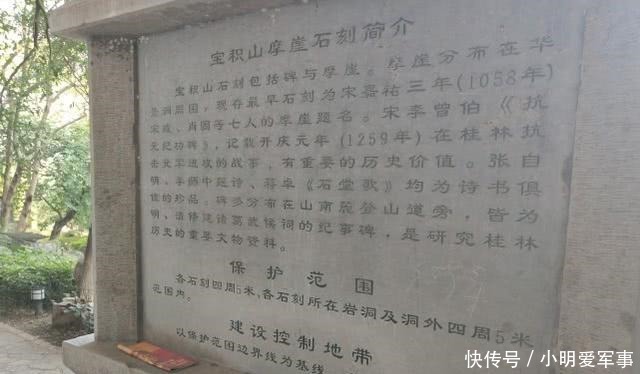 宝积山摩崖石刻简介
宝积山石刻包括碑与摩崖。摩崖分布在华
景洞周围,现存最早石刻为宋嘉祐三年(1058年)
宋咸、肖固等七人的摩崖题名。宋李曾伯《抗
元纪功碑》,记载开庆元年(1259年)在桂林抗
击元军进攻的战事,有重要的历史价值。张自
明、李师中题诗、蒋《石堂歌》均为诗书俱
佳的珍品。碑多分布在山南麓登山道旁,皆为
明、清修建诸葛武侯祠的纪事碑,是研究桂林
历史的重要文物资料。
保护范围
各石刻四周5米,各石刻所在岩洞及洞外四周5米
范围内。
建设控制地带
以保护范围边界线为基线
快传号/小明爱军事